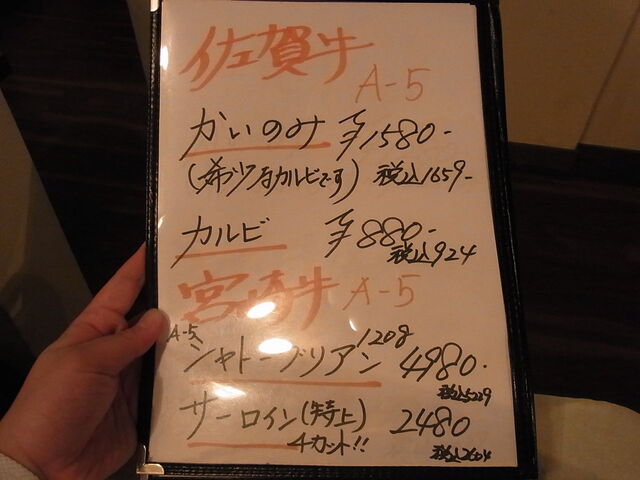 佐賀牛
A-5
かいのみ ¥1580-
(希少なカルビです) 税込1659-
カルビ ¥880-
税込924
宮崎牛 A-5
A-5
シャトーブリアン 120g 4980-
税込5229
サーロイン(特上) 2480
4カット!! 税込2604